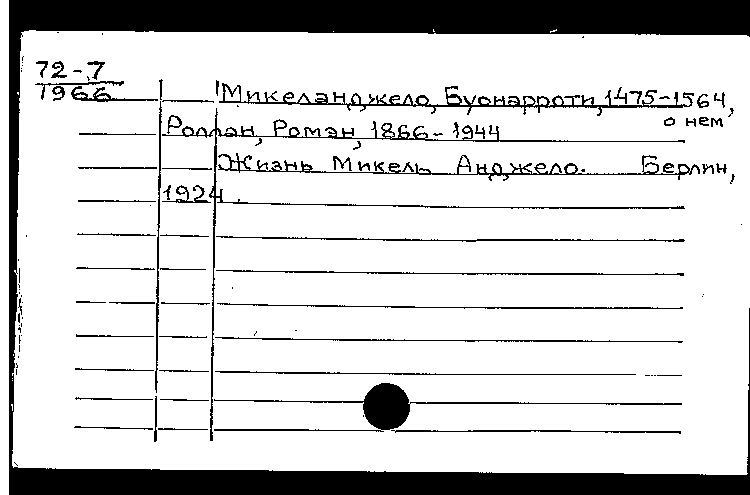 72-7
1966
Микеланджело, Буонарроти, 1475-1564,
о нем
Роллан, Роман, 1866-1944
Жизнь Микель Анджело. Берлин,
1924.